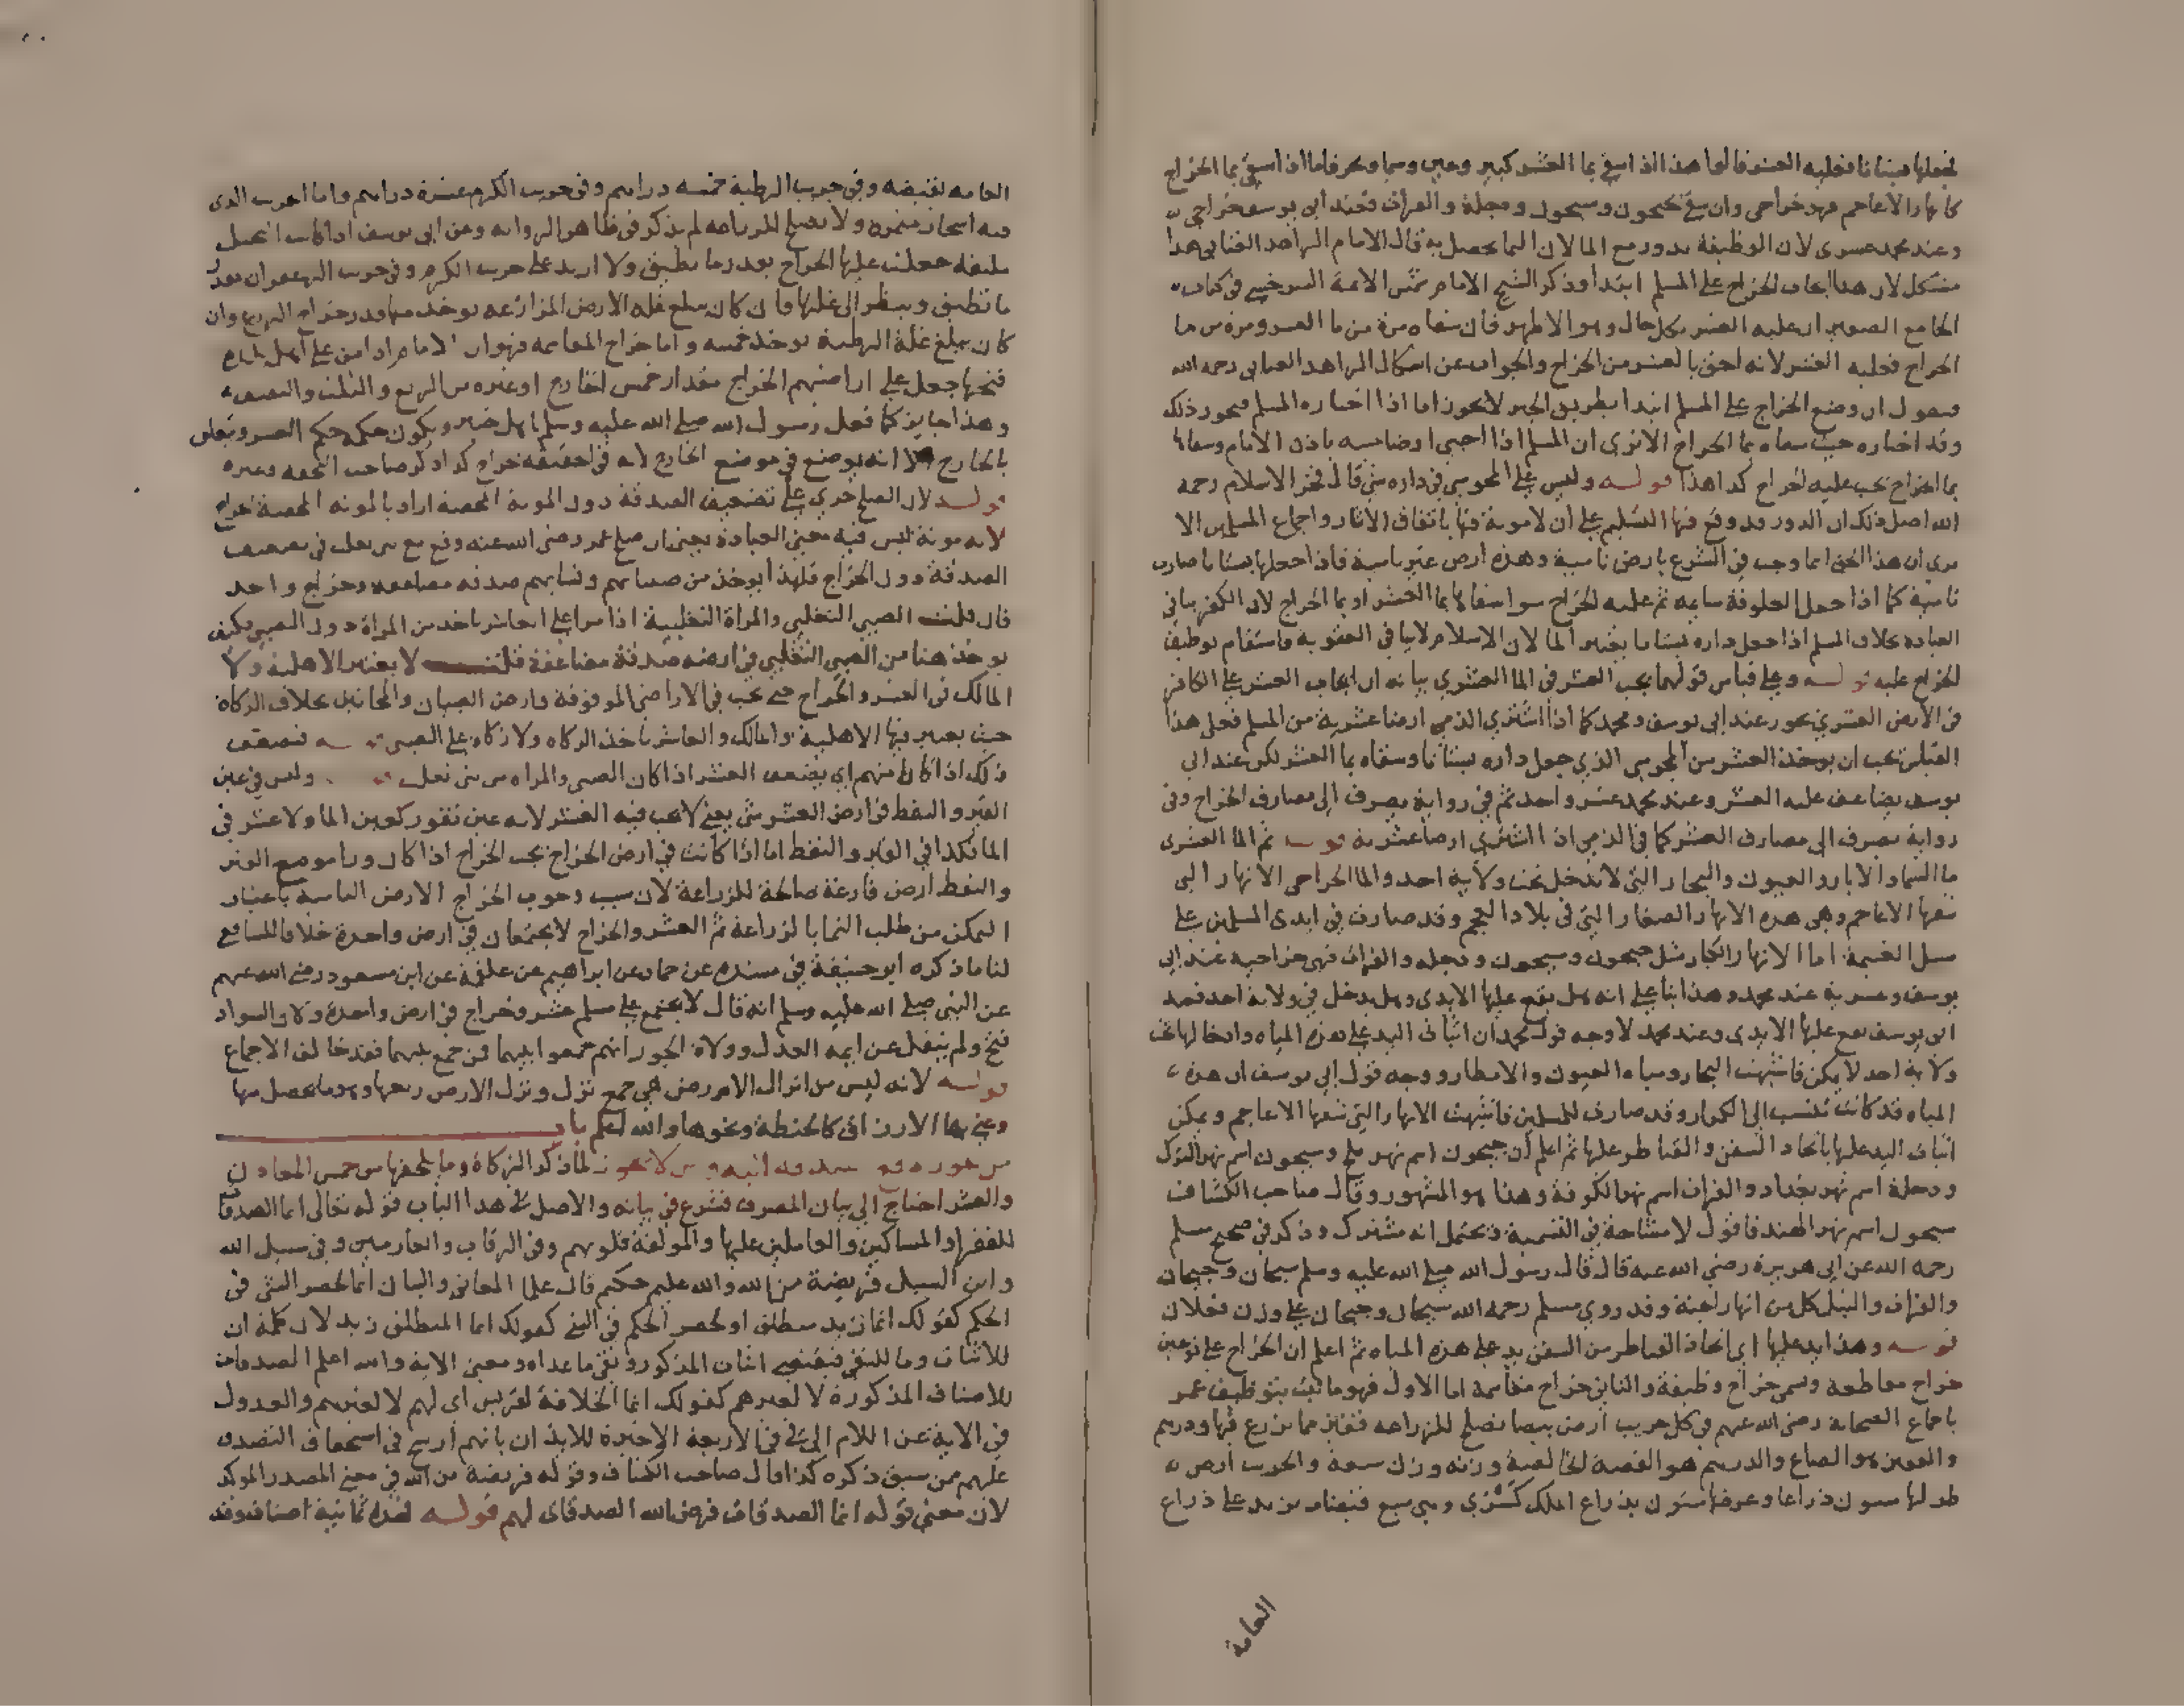 فجعلها بستانا فعليه العشر قالوا هذا اذا سقي بما العشر كبير وعين وسما وبحر فاما اذا سقي بما الخراج
كانهار الاعاجم فهو خراجي وان سقي بجيحون وسيحون ودجلة والفرات فعند ابي يوسف خراجي
وعند محمد عسري لان الوظيفة تدور مع الما لان النما يحصل به قال الامام الزاهد العتابي هذا
مشكل لان هذا ايجاب الخراج على المسلم ابتدا وذكر الشيخ الامام شمس الائمة السرخسي في كتاب
الجامع الصغير ان عليه العشر بكل حال وهو الاظهر فان سقاه مرة من ما العسر ومرة من ما
الخراج فعليه العشر لانه احق بالعشر من الخراج والجواب عن اشكال الزاهد العتابي رحمه الله
فنقول ان وضع الخراج على المسلم ابتدا بطريق الجبر لا يجوز اما اذا اختاره المسلم فيجوز ذلك
وقد اختاره حيث سقاه بما الخراج الا ترى ان المسلم اذا احيى ارضا ميتة باذن الامام وسقاها
بما الخراج يجب عليه الخراج كذا هذا قوله وليس على المجوسي في داره شي قال فخر الاسلام رحمه
الله اصل ذلك ان الدور قد وقع فيها التسليم على ان لا مونة فيها باتفاق الاثار واجماع المسلمين الا
يرى ان هذا الحق انما وجب في الشرع بارض نامية وهذه ارض غير نامية فاذا جعلها بستانا صارت
نامية كما اذا جعل العلوفة سايمة ثم عليه الخراج سوا سقاها بما العشر او بما الخراج لان الكفر ينافي
العبادة بخلاف المسلم اذا جعل داره بستانا يعتبر الما لان الاسلام لا ينافي العقوبة فاستقام توظيف
الخراج عليه قوله وعلى قياس قولهما يجب العشر في الما العشري بيانه ان ايجاب العشر على الكافر
في الارض العشري يجوز عند ابي يوسف ومحمد كما اذا اشترى الذمي ارضا عشرية من المسلم فعلى هذا
القياس يجب ان يوخذ العشر من المجوسي الذي جعل داره بستانا وسقاه بما العشر لكن عند ابي
يوسف يضاعف عليه العشر وعند محمد عشر واحد ثم في رواية يصرف الى مصارف الخراج وفي
رواية يصرف الى مصارف العشر كما في الذمي اذا اشترى ارضا عشرية قوله ثم الما العشري
ما السما والابار والعيون والبحار التي لا تدخل تحت ولاية احد والما الخراجي الانهار التي
شقها الاعاجم وهي هذه الانهار الصغار التي في بلاد العجم وقد صارت في ايدي المسلمين على
سبيل الغنيمة اما الانهار الكبار مثل جيحون وسيحون ودجله والفرات فهي خراجيه عند ابي
يوسف وعسرية عند محمد وهذا بنا على انه هل يقع عليها الايدي وهل يدخل في ولاية احد فعند
ابي يوسف يقع عليها الايدي وعند محمد لا وجه قول محمد ان اثبات اليد على هذه المياه وادخالها تحت
ولاية احد لا يمكن فاشبهت البحار ومياه العيون والامطار ووجه قول ابي يوسف ان هذه
المياه قد كانت تنسب الى الكفار وقد صارت للمسلمين فاشبهت الانهار التي شقها الاعاجم ويمكن
اثبات اليد عليها باتخاذ السفن والقناطر عليها ثم اعلم ان جيحون اسم نهر بلخ وسيحون اسم نهر الترك
ودجلة اسم نهر بغداد والفرات اسم نهر الكوفة وهذا هو المشهور وقال صاحب الكشاف
سيحون اسم نهر الهند فاقول لا مشاحة في التسمية فيحتمل انه مشترك وذكر في صحيح مسلم
رحمه الله عن ابي هريرة رضي الله عنه قال قال رسول الله صلى الله عليه وسلم سيحان وجيحان
والفرات والنيل كل من انهار الجنة وقد روي مسلم رحمه الله سيحان وجيحان على وزن فعلان
قوله وهذا يد عليها اي اتخاذ القناطر من السفن يد على هذه المياه ثم اعلم ان الخراج على نوعين
خراج مقاطعة وتسمى خراج وظيفة والثاني خراج مقاسمة اما الاول فهو ما ثبت بتوظيف عمر
باجماع الصحابة رضي الله عنهم في كل جريب ارض بيضا تصلح للزراعه قفيز مما يزرع فيها ودرهم
والقفيز هو الصاع والدرهم هو الفضة الخالصة وزنه وزن سبعة والجريب ارض
طولها ستون ذراعا وعرضها ستون بذراع الملك كسرى وهي سبع قبضات يزيد على ذراع
العامة
العامه بقبضه وفي جريب الرطبة خمسه دراهم وفي جريب الكرم عشرة دراهم واما الجريب الذي
فيه اشجار مثمرة ولا يصلح للزراعه لم يذكر في ظاهر الروايه وعن ابي يوسف اذا كانت النخيل
ملتفة جعلت عليها الخراج بقدر ما يطيق ولا ازيد على جريب الكرم وفي جريب الزعفران بقدر
ما تطيق وينظر الى غلتها فان كان يبلغ غله الارض المزارعه يوخذ منها قدر خراج الزرع وان
كان يبلغ غلة الرطبة يوخذ خمسه واما خراج المقاسمه فهو ان الامام اذا من على اهل بلدة
فتحها جعل على اراضيهم الخراج مقدار خمس الخارج او عشره من الربع والثلث والنصف
وهذا جايز كما فعل رسول الله صلى الله عليه وسلم باهل خيبر ويكون حكمه حكم العسر ويتعلق
بالخارج الا انه يوضع في موضع الخارج لانه في الحقيقه خراج كذا ذكر صاحب التحفه وغيره
قوله لان الصلح جرى على تضعيف الصدقة دون المونة المحضة اراد بالمونه المحضة الخراج
لانه مونة ليس فيه معنى العبادة يعني ان صلح عمر رضي الله عنه وقع مع بني تغلب في تضعيف
الصدقة دون الخراج فلهذا يوخذ من صبيانهم ونسايهم صدقه مضاعفه وخراج واحد
فان قلت الصبي التغلبي والمراة التغلبية اذا مرا على العاشر ياخذ من المراة دون الصبي فكيف
يوخذ هنا من الصبي التغلبي في ارضه صدقة مضاعفة قلت لا يعتبر الاهلية ولا
المالك في العشر والخراج حتى يجب في الاراضي الموقوفة وارض الصبيان والمجانين بخلاف الزكاة
حيث يعتبر فيها الاهلية والمالك والعاشر ياخذ الزكاه ولا زكاة على الصبي قوله فتضعف
ذلك اذا كان منهم اي يضعف العشر اذا كان الصبي والمراه من بني تغلب قوله وليس في عين
القير والنفط في ارض العشر شي يعني لا يجب فيه العشر لانه عين تفور كعين الما ولا عشر في
الما فكذا في القير والنفط اما اذا كانت في ارض الخراج يجب الخراج اذا كان ورا موضع القير
والنفط ارض فارغة صالحة للزراعة لان سبب وجوب الخراج الارض النامية باعتبار
التمكن من طلب النما بالزراعة ثم العشر والخراج لا يجتمعان في ارض واحدة خلافا للشافعي
لنا ما ذكره ابو حنيفة في مسنده عن حماد عن ابراهيم عن علقمة عن ابن مسعود رضي الله عنهم
عن النبي صلى الله عليه وسلم انه قال لا يجتمع على مسلم عشر وخراج في ارض واحدة ولان السواد
فتح ولم ينقل عن ايمة العدل وولاة الجور انهم جمعوا بينهما فمن جمع بينهما فقد خالف الاجماع
قوله لانه ليس من انزال الارض هي جمع نزل ونزل الارض ريعها وهو ما يحصل منها
وعني بها الارزاق كالحنطة ونحوها والله اعلم باب
من يجوز دفع الصدقة اليه ومن لا يجوز لما ذكر الزكاة وما يلحقها من خمس المعادن
والعشر احتاج الى بيان المصرف فشرع في بيانه والاصل في هذا الباب قوله تعالى انما الصدقات
للفقرا والمساكين والعاملين عليها والمولفة قلوبهم وفي الرقاب والغارمين وفي سبيل الله
وابن السبيل فريضة من الله والله عليم حكيم قال علما المعاني والبيان انما لحصر الشي في
الحكم كقولك انما زيد منطلق او لحصر الحكم في الشي كقولك انما المنطلق زيد لان كلمة ان
للاثبات وما للنفي فيقتضي اثبات المذكور ونفي ما عداه ومعنى الاية والله اعلم الصدقات
للاصناف المذكورة لا لغيرهم كقولك انما الخلافة لقريش اي لهم لا لغيرهم والعدول
في الاية عن اللام الى في في الاربعة الاخيرة للايذان بانهم ارسخ في استحقاق التصدق
عليهم ممن سبق ذكره كذا قال صاحب الكشاف وقوله فريضة من الله في معنى المصدر الموكد
لان معنى قوله انما الصدقات فرض الله الصدقات لهم قوله فهذه ثمانية اصناف وقد